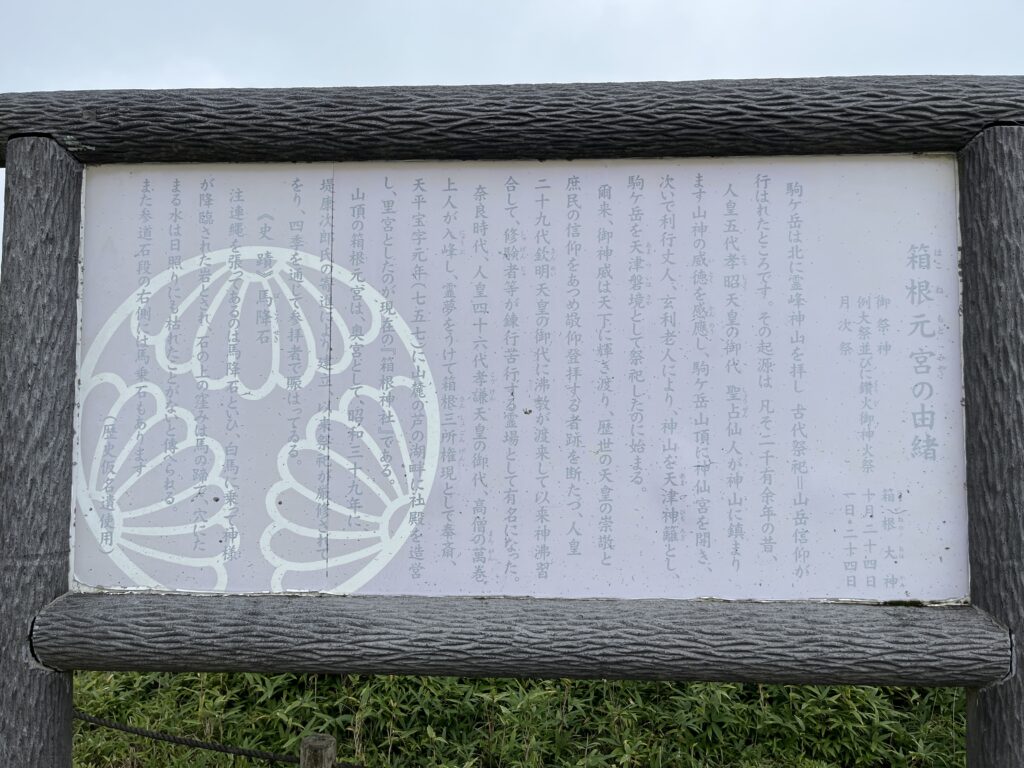 箱根元宮の由緒
御祭神 箱根大神
例大祭並びに鑽火御神火祭 十月二十四日
月次祭 一日・二十四日
駒ケ岳は北に霊峰神山を拝し 古代祭祀＝山岳信仰が
行はれたところです。その起源は、凡そ二千有余年の昔、
人皇五代孝昭天皇の御代、聖占仙人が神山に鎮まり
ます山神の威徳を感應し、駒ケ岳山頂に神仙宮を開き、
次いで利行丈人、玄利老人により、神山を天津神籬とし、
駒ケ岳を天津磐境として祭祀したのに始まる。
爾来、御神威は天下に輝き渡り、歴世の天皇の崇敬と
庶民の信仰をあつめ敬仰登拝する者跡を断たつ、人皇
二十九代欽明天皇の御代に沸教が渡来して以来神沸習
合して、修験者等が練行苦行する霊場として有名になった。
奈良時代、人皇四十六代孝謙天皇の御代、高僧の萬巻
上人が入峰し、霊夢をうけて箱根三所権現として奉斎、
天平宝字元年（七五七）に山麓の芦の湖畔に社殿を造営
し、里宮としたのが現在の『箱根神社』である。
山頂の箱根元宮は、奥宮として、昭和三十九年に、
堤康次郎氏の寄進により建立、以来祭祀が厳修されて
をり、四季を通じて参拝者で賑はってゐる。
《史蹟》馬降石
注連縄を張ってあるのは馬降石といひ、白馬に乗って神様
が降臨された岩とされ、石の上の窪みは馬の蹄で、穴にた
まる水は日照りにも枯れたことがないと傳へられる。
また参道石段の右側には馬乗石もあります。
（歴史仮名遣使用）